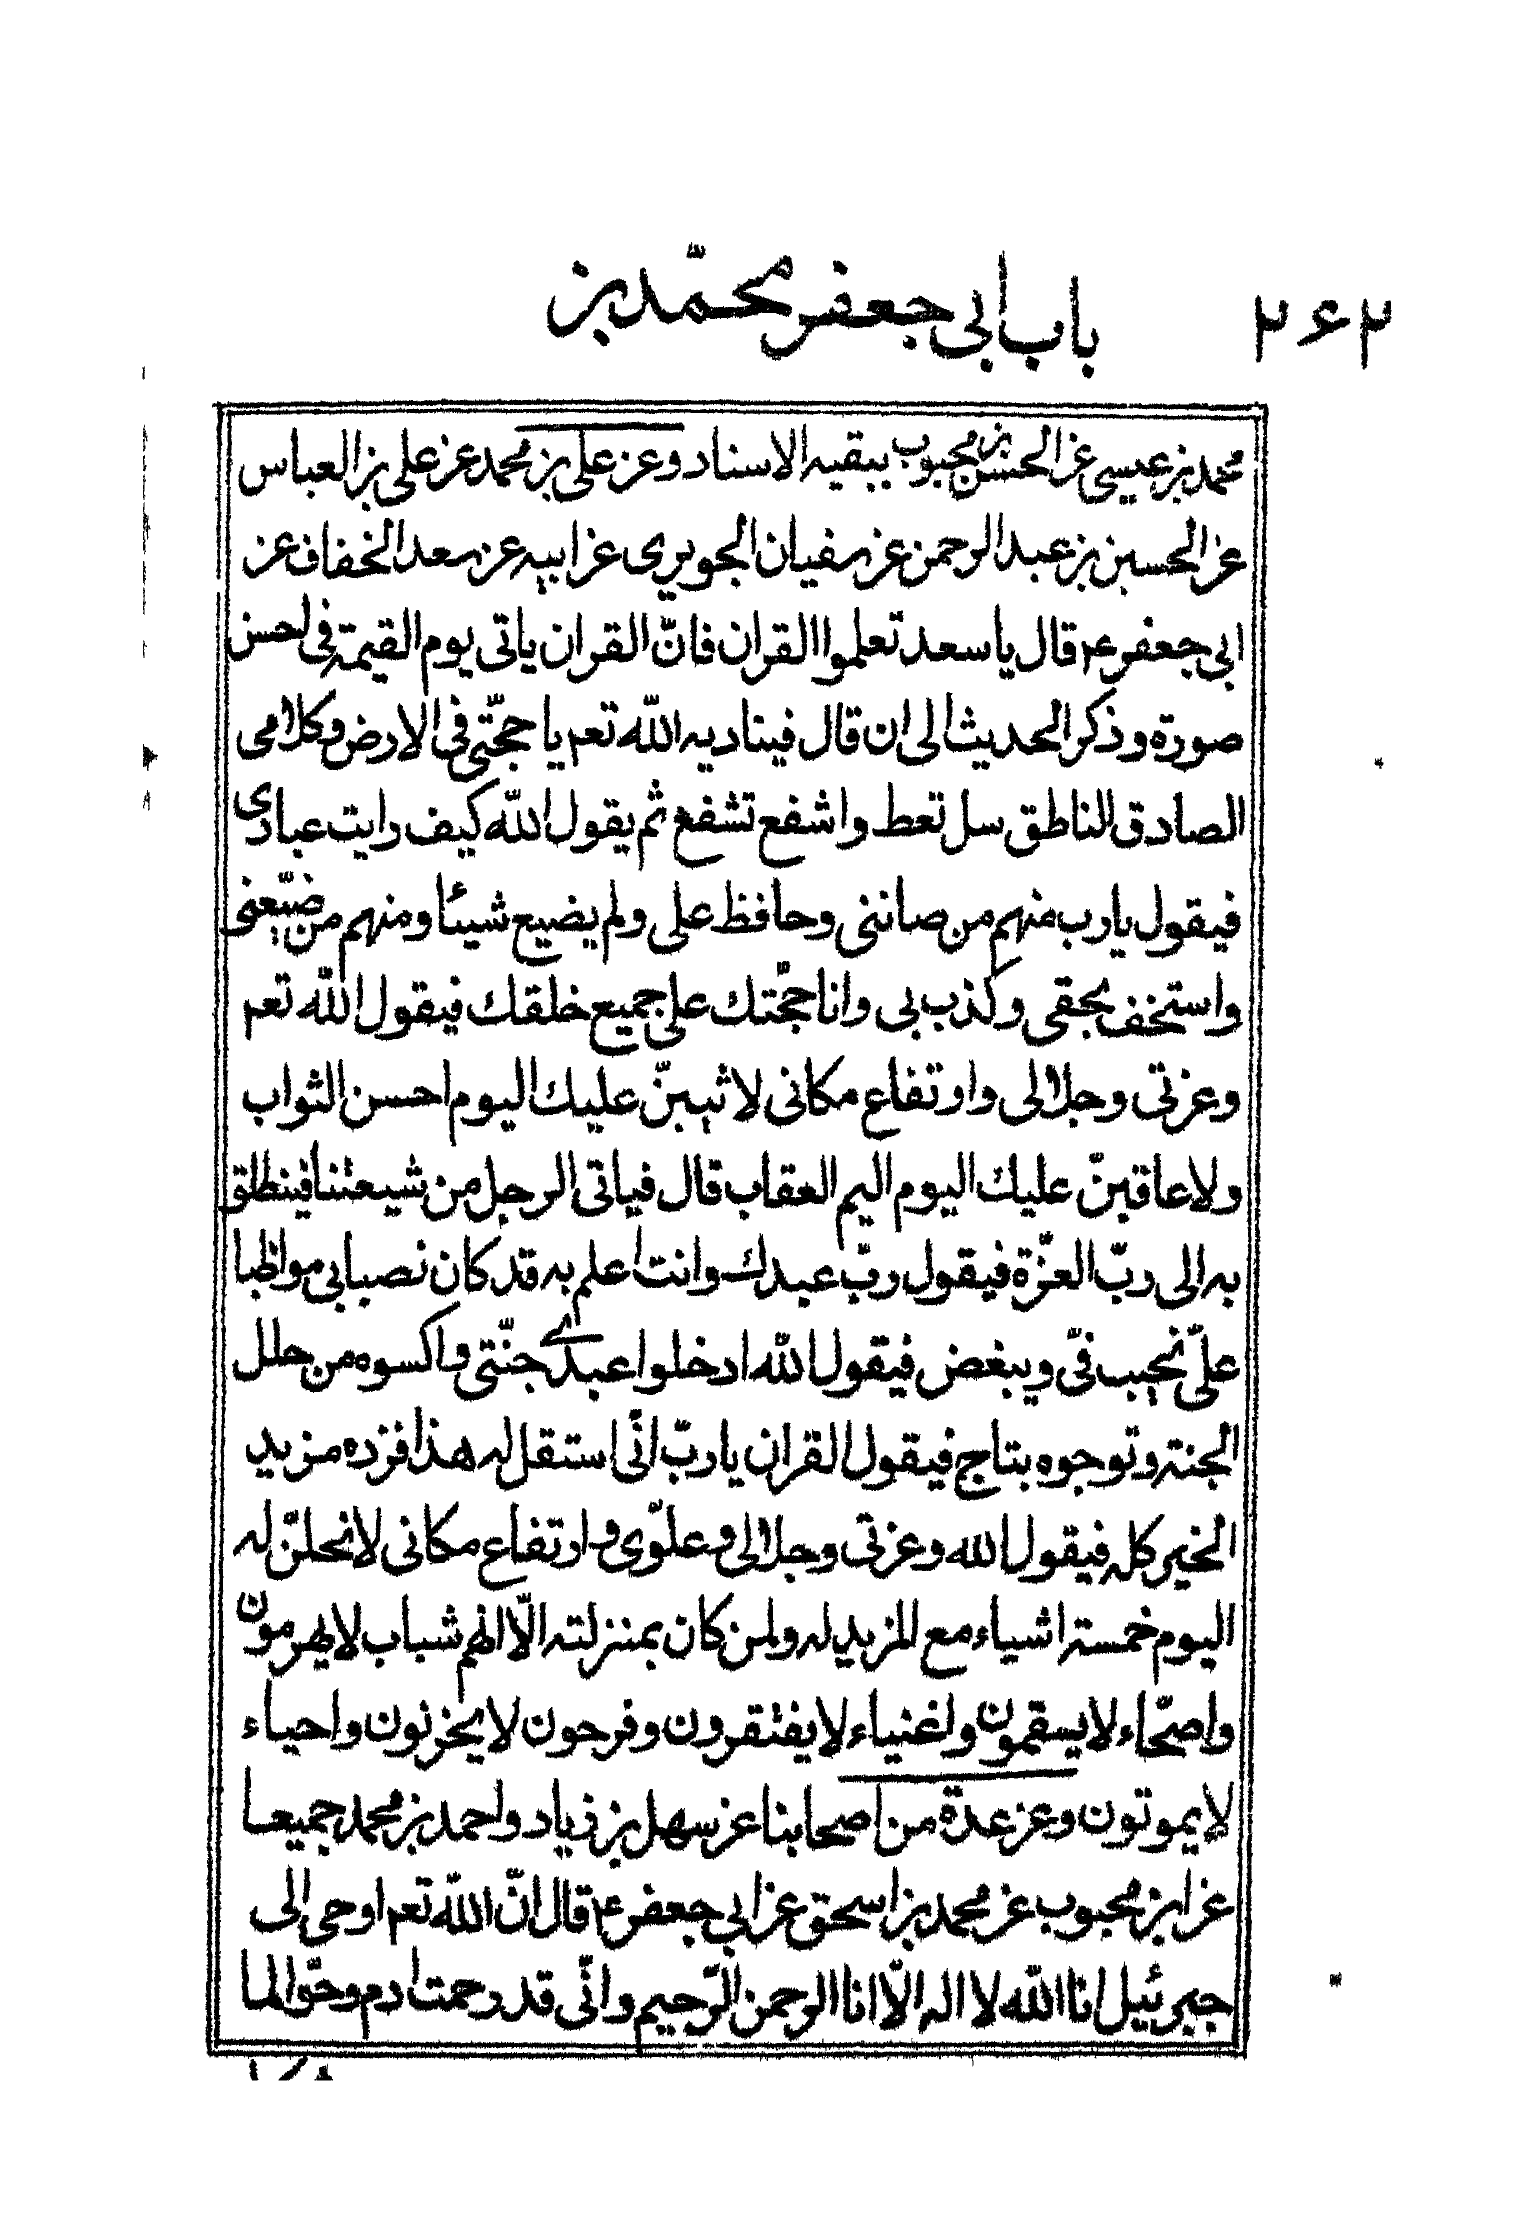 ۲۶۲ باب ابى جعفر محمّد بن
محمد بن عيسى عن الحسن بن محبوب ببقيه الاسناد وعن على بن محمد عن على بن العباس
عن الحسين بن عبد الرحمن عن سفيان الجويرى عن ابيه عن سعد الخفاف عن
ابى جعفر ع قال يا سعد تعلموا القران فانّ القران ياتى يوم القيمة فى احسن
صورة وذكر الحديث الى ان قال فيناديه اللّه تعم يا حجّتى فى الارض وكلامى
الصادق الناطق سل تعط واشفع تشفع ثم يقول اللّه كيف رايت عبادى
فيقول يارب منهم من صاننى وحافظ على ولم يضيع شيئا ومنهم من ضيّعنى
واستخف بحقى وكذب بى وانا حجّتك على جميع خلقك فيقول اللّه تعم
وعزتى وجلالى وارتفاع مكانى لاثيبنّ عليك اليوم احسن الثواب
ولاعاقبنّ عليك اليوم اليم العقاب قال فياتى الرجل من شيعتنا فينطلق
به الى ربّ العزّة فيقول ربّ عبدك وانت اعلم به قد كان نصبا بى مواظبا
علىّ يحب فىّ ويبغض فيقول اللّه ادخلوا عبدى جنّتى واكسوه من حلل
الجنة وتوجوه بتاج فيقول القران ياربّ انّى استقل له هذا فزده مزيد
الخير كله فيقول الله وعزتى وجلالى وعلوّى وارتفاع مكانى لانحلنّ له
اليوم خمسة اشياء مع المزيد له ولمن كان بمنزلته الّا انهم شباب لا يهرمون
واصحّاء لا يسقمون واغنياء لا يفتقرون وفرحون لا يحزنون واحياء
لا يموتون وعن عدة من اصحابنا عن سهل بن زياد واحمد بن محمد جميعا
عن ابن محبوب عن محمد بن اسحق عن ابى جعفر ع قال انّ اللّه تعم اوحى الى
جبرئيل انا اللّه لا اله الّا انا الرحمن الرّحيم وانّى قد رحمت ادم وحوّا لما